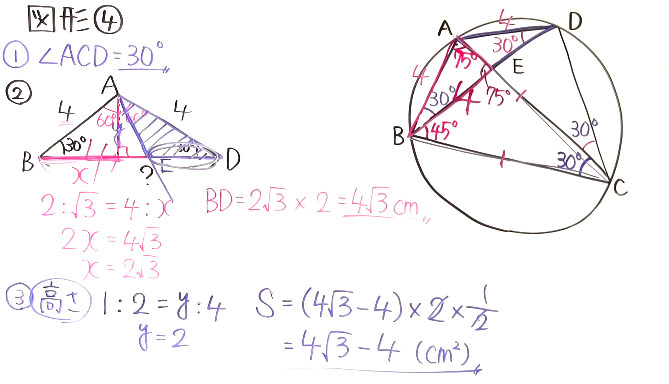 図形④
① ∠ACD=30°
②
A
4
4
60°
y
30°
B
x
?
E
D
2:√3=4:x
2x=4√3
x=2√3
BD=2√3×2=4√3cm
③ 高さ 1:2=y:4
y=2
S=(4√3-4)×2×1/2
=4√3-4 (cm²)
A
4
D
75°
30°
E
4
4
75°
30°
B
45°
30°
30°
C